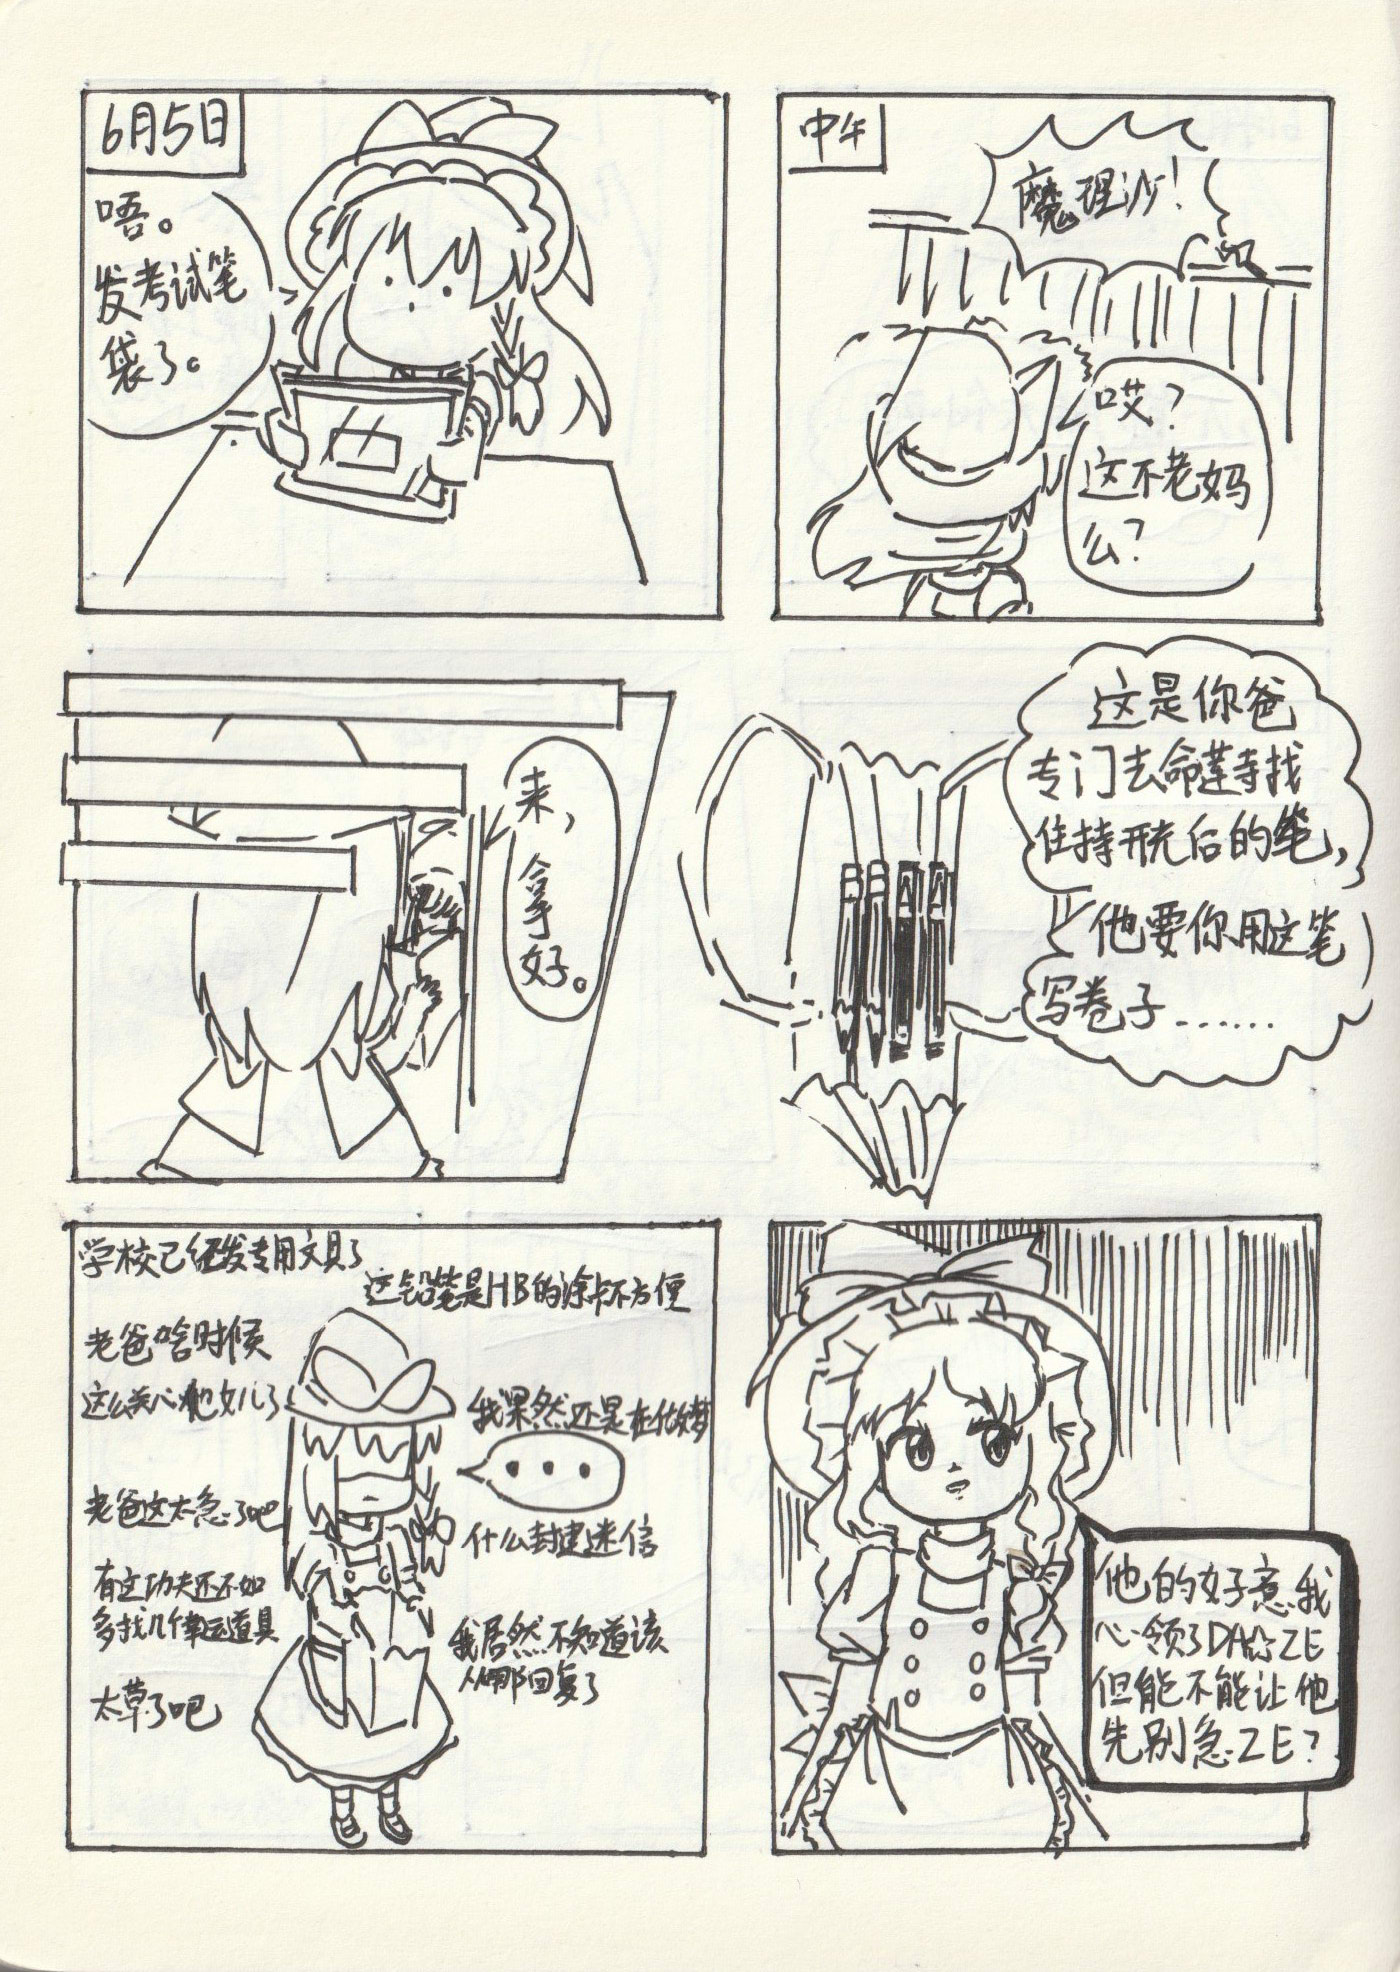 6月5日
唔。
发考试笔
袋了。
中午
魔理沙！
哎？
这不老妈
么？
来，
拿
好。
这是你爸
专门去命莲寺找
住持开光后的笔，
他要你用这笔
写卷子……
学校已经发专用文具了
这铅笔是HB的涂卡不方便
老爸啥时候
这么关心他女儿了
我果然还是在做梦
...
老爸这太急了吧
什么封建迷信
有这功夫还不如
多找几件幸运道具
我居然不知道该
从哪回复了
太草了吧
他的好意我
心领了DA ZE
但能不能让他
先别急ZE？